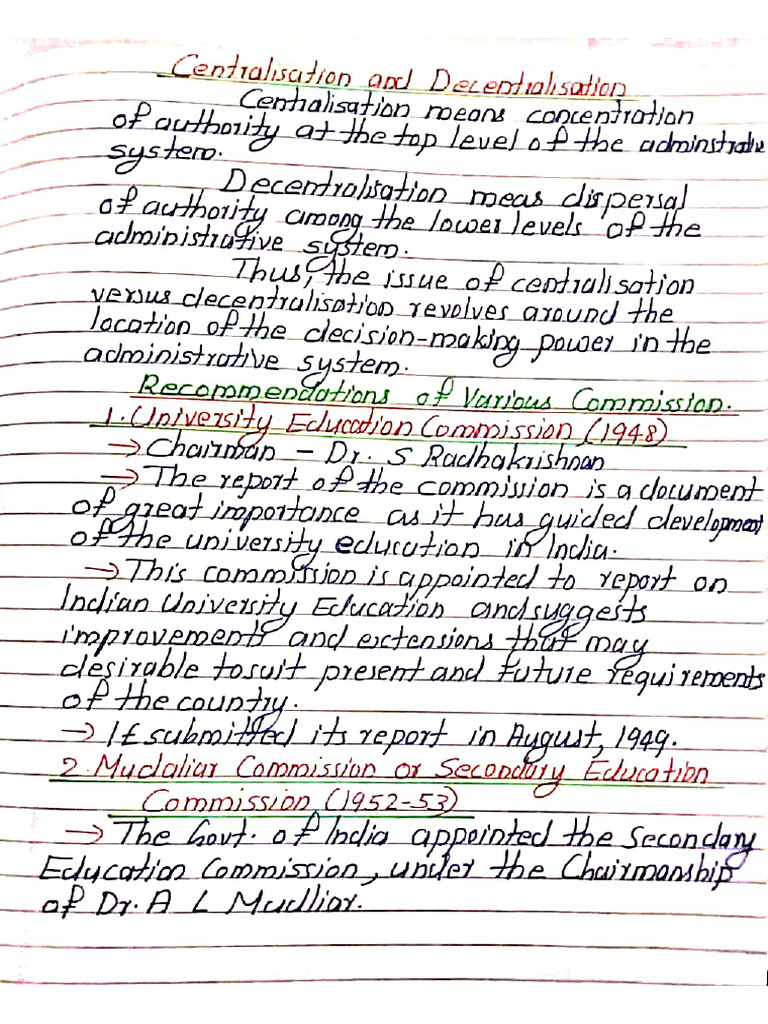 Centralisation and Decentralisation
Centralisation means concentration
of authority at the top level of the adminstrative
system.
Decentralisation meas dispersal
of authority among the lower levels of the
administrative system.
Thus, the issue of centralisation
versus decentralisation revolves around the
location of the decision-making power in the
administrative system.
Recommendations of Various Commission.
1. University Education Commission (1948)
→ Chairman - Dr. S Radhakrishnan
→ The report of the commission is a document
of great importance as it has guided development
of the university education in India.
→ This commission is appointed to report on
Indian University Education and suggests
improvements and extensions that may
desirable to suit present and future requirements
of the country.
→ It submitted its report in August, 1949.
2. Mudaliar Commission or Secondary Education
Commission (1952-53)
→ The Govt. of India appointed the Secondary
Education Commission, under the Chairmanship
of Dr. A L Mudliar.